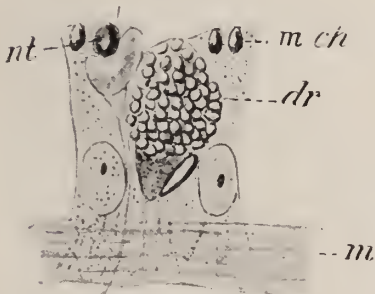 nt
m ch
dr
m